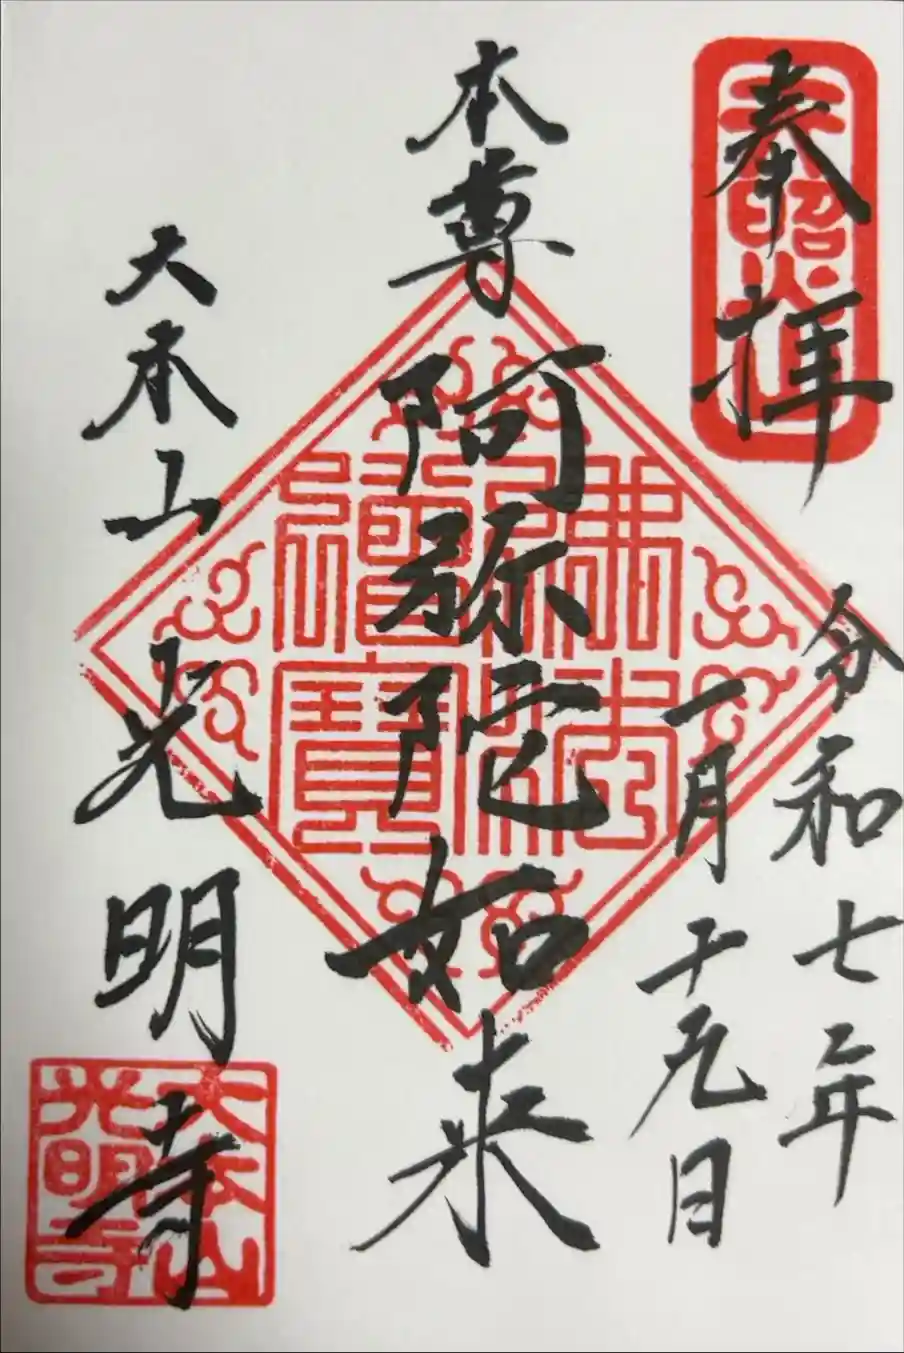 奉拝
令和七年
一月十九日
本尊
阿弥陀如来
大本山
光明寺
佛法僧寶
大本山
光明寺